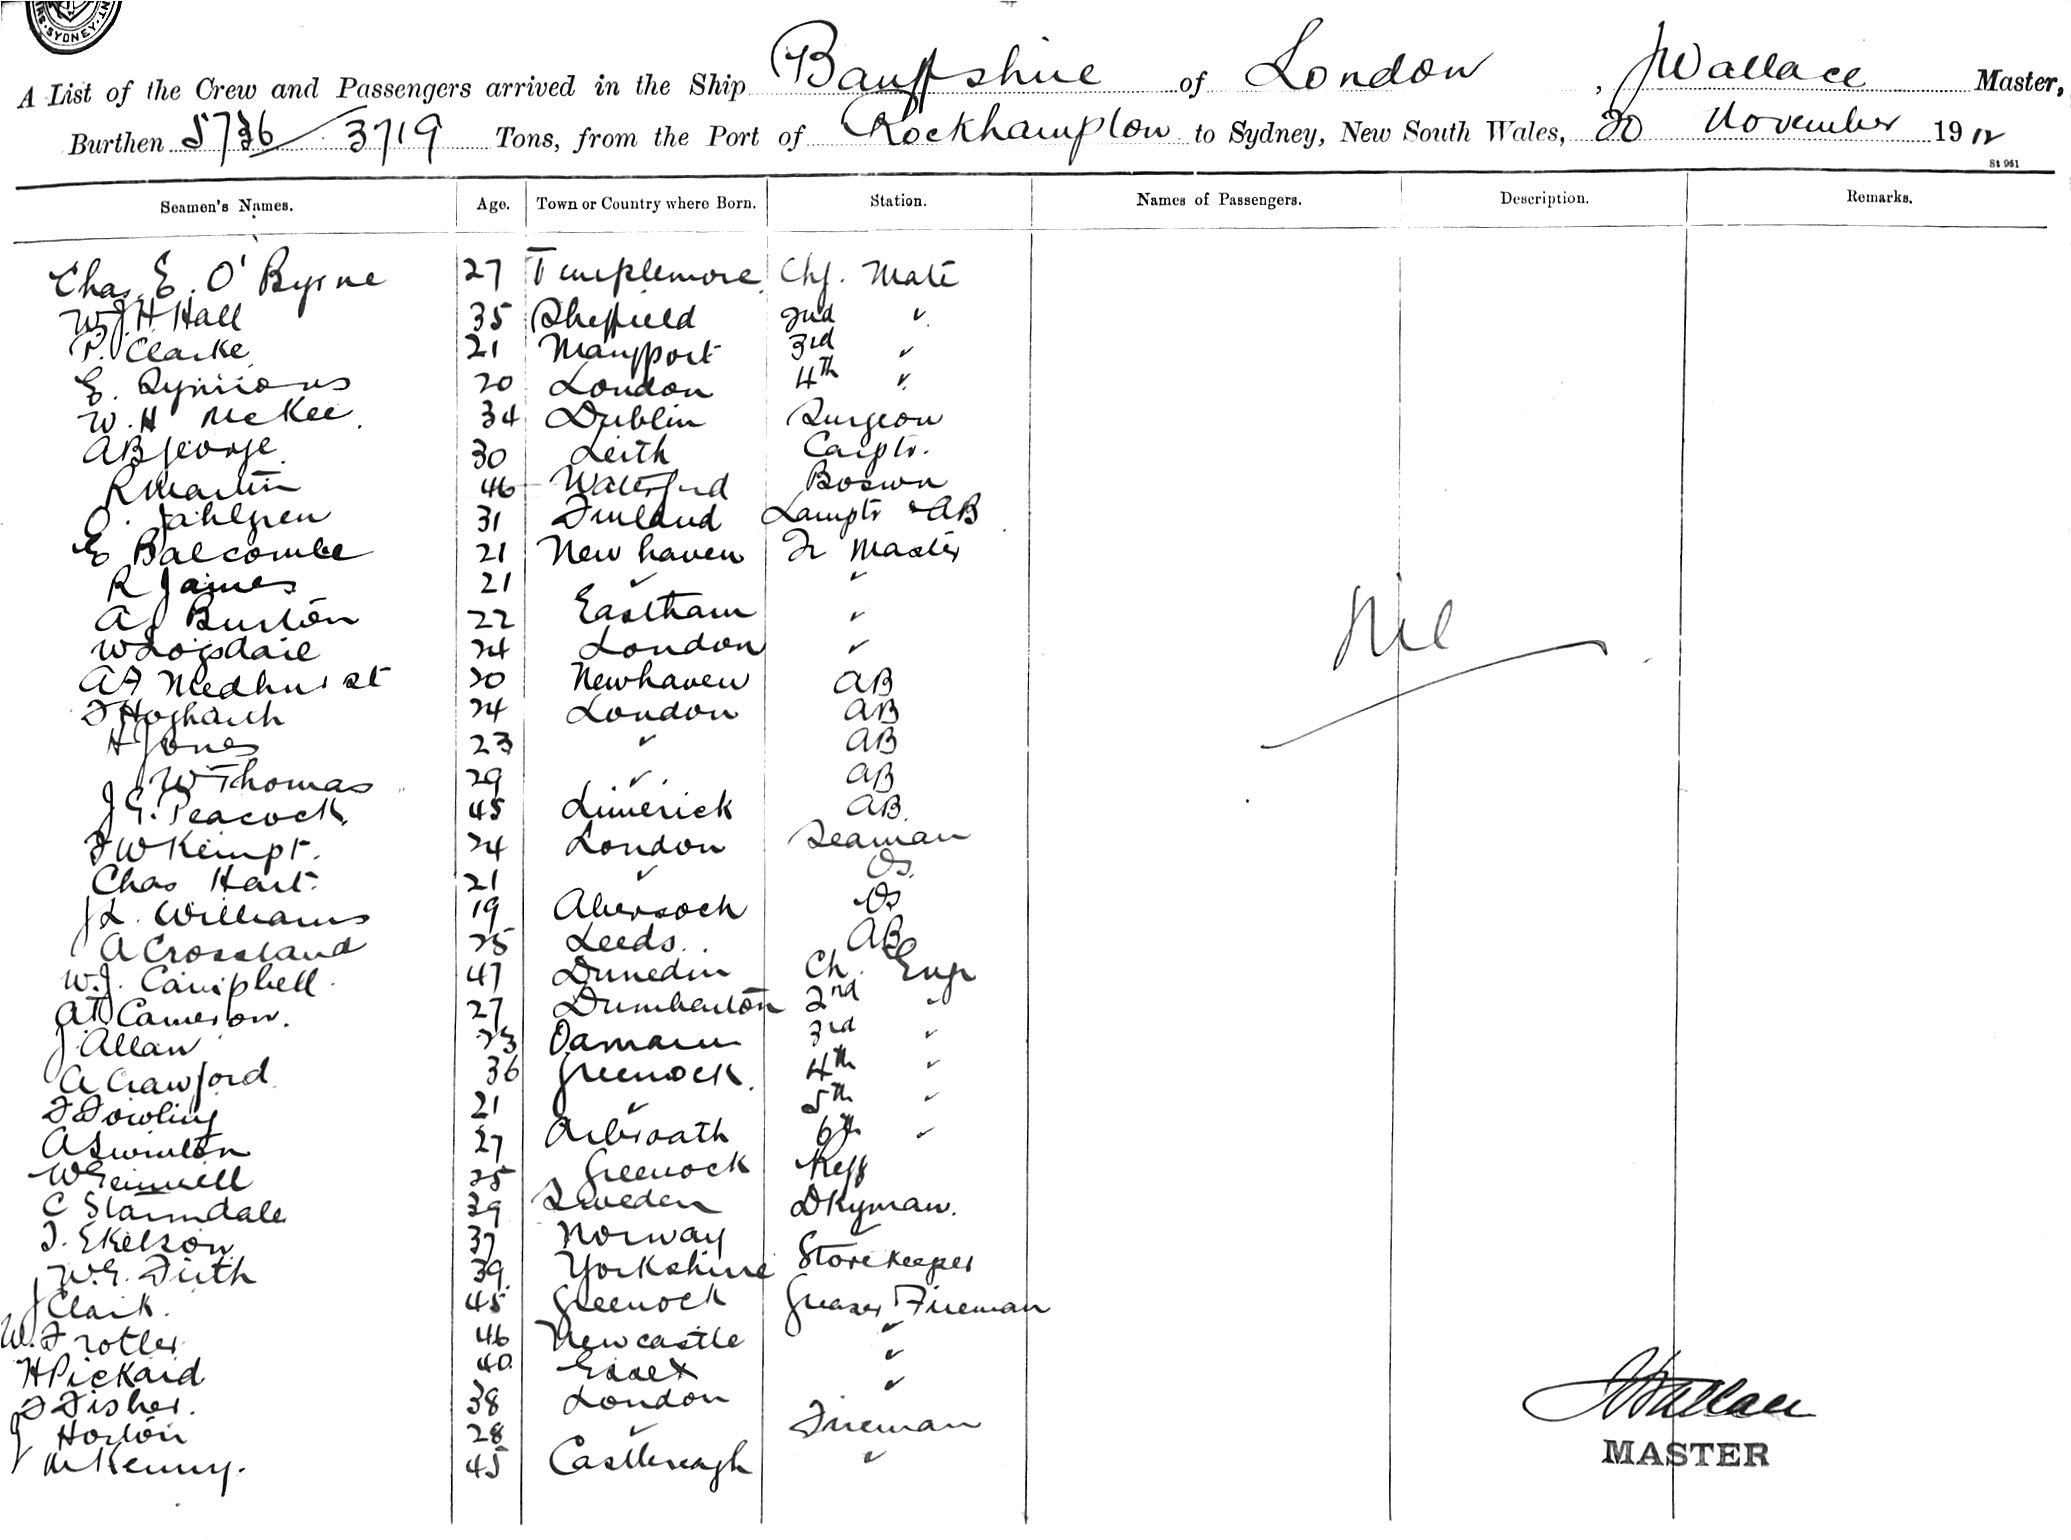 SYDNEY
A List of the Crew and Passengers arrived in the Ship Banffshire of London, J Wallace Master,
Burthen 5736 / 3719 Tons, from the Port of Rockhampton to Sydney, New South Wales, 20 November 1912
St 961
Seamen's Names. Age. Town or Country where Born. Station. Names of Passengers. Description. Remarks.
Chas. E. O'Byrne 27 Templemore Chf. Mate
W.J.H. Hall 35 Sheffield 2nd "
P. Clarke 21 Maryport 3rd "
E. Symons 20 London 4th "
W. H McKee 34 Dublin Surgeon
AB George 30 Leith Carptr.
R Martin 46 Waterford Boswn
O. Jahlgren 31 Finland Lamptr & AB
E Balcombe 21 Newhaven Qr Master
R James 21 " "
A J Burton 22 Eastham "
W Logsdail 24 London "
AF Medhurst 20 Newhaven AB
F Hogharth 24 London AB
H Jones 23 " AB
J W Thomas 29 " AB
J G. Peacock. 45 Limerick AB
F W Kempt. 24 London Seaman
Chas Hart. 21 " Os.
J L. Williams 19 Abersoch Os
A Crossland 25 Leeds. AB
W.J. Campbell. 47 Dunedin Ch. Engr
A Cameron. 27 Dumbarton 2nd "
J Allan 23 Oamaru 3rd "
A Crawford 36 Greenock. 4th "
F Dowling 21 " 5th "
A Swinton 27 Arbroath 6th "
W Gemmell 25 Greenock Refg
C 39 Sweden DKyman.
37 Norway "
W.E. Firth 39 Yorkshire Storekeeper
J Clark. 45 Greenock Greaser Fireman
W. Trotter 46 Newcastle "
H Pickard 40 Essex "
F Fisher. 38 London "
J Horton 28 " Fireman
M Kenny. 45 Castlereagh "
Nil
J Wallace
MASTER